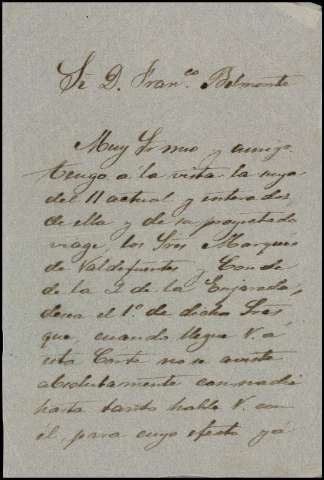 Sr D. Franco. Belmonte
Muy Sr mio y amigo:
tengo á la vista la suya
del 11 actual y enterados
de ella y de su proyectado
viage, los Sres Marqués
de Valdefuentes y Conde
de la Q de la Enjarada,
desea el 1º de dichos Sres
que, cuando llegue V. á
esta Corte no se aviste
absolutamente con nadie
hasta tanto hable V. con
él, para cuyo efecto ya